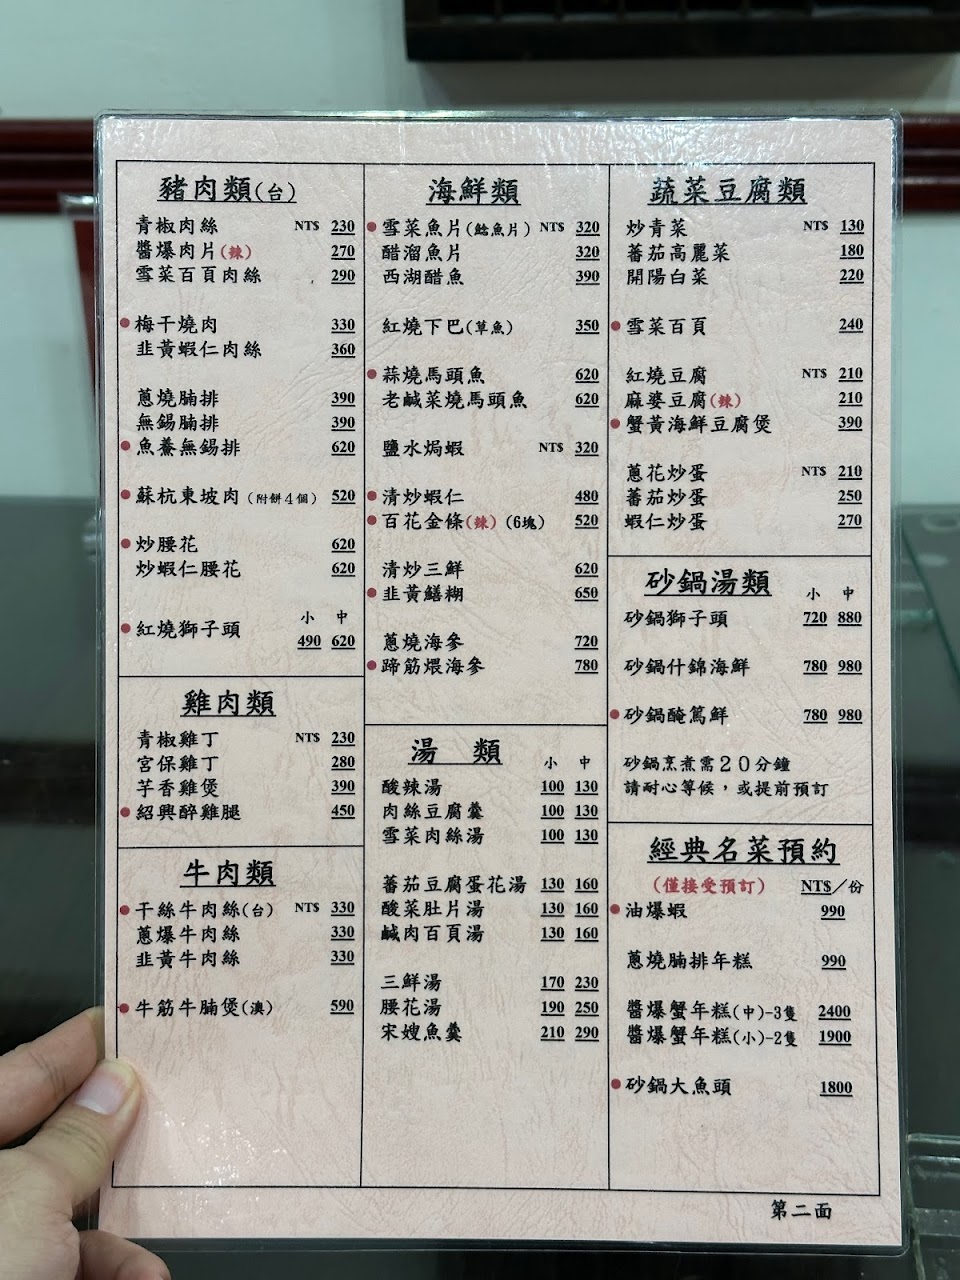 豬肉類(台)
青椒肉絲 NT$ 230
醬爆肉片(辣) 270
雪菜百頁肉絲 290
●梅干燒肉 330
韭黃蝦仁肉絲 360
蔥燒腩排 390
無錫腩排 390
●魚鯗無錫排 620
●蘇杭東坡肉(附餅4個) 520
●炒腰花 620
炒蝦仁腰花 620
小 中
●紅燒獅子頭 490 620
雞肉類
青椒雞丁 NT$ 230
宮保雞丁 280
芋香雞煲 390
●紹興醉雞腿 450
牛肉類
●干絲牛肉絲(台) NT$ 330
蔥爆牛肉絲 330
韭黃牛肉絲 330
●牛筋牛腩煲(澳) 590
海鮮類
●雪菜魚片(鯰魚片) NT$ 320
醋溜魚片 320
西湖醋魚 390
紅燒下巴(草魚) 350
●蒜燒馬頭魚 620
老鹹菜燒馬頭魚 620
鹽水焗蝦 NT$ 320
●清炒蝦仁 480
●百花金條(辣)(6塊) 520
清炒三鮮 620
●韭黃鱔糊 650
蔥燒海參 720
●蹄筋煨海參 780
湯 類
小 中
酸辣湯 100 130
肉絲豆腐羹 100 130
雪菜肉絲湯 100 130
蕃茄豆腐蛋花湯 130 160
酸菜肚片湯 130 160
鹹肉百頁湯 130 160
三鮮湯 170 230
腰花湯 190 250
宋嫂魚羹 210 290
蔬菜豆腐類
炒青菜 NT$ 130
蕃茄高麗菜 180
開陽白菜 220
●雪菜百頁 240
紅燒豆腐 NT$ 210
麻婆豆腐(辣) 210
●蟹黃海鮮豆腐煲 390
蔥花炒蛋 NT$ 210
蕃茄炒蛋 250
蝦仁炒蛋 270
砂鍋湯類
小 中
砂鍋獅子頭 720 880
砂鍋什錦海鮮 780 980
●砂鍋醃篤鮮 780 980
砂鍋烹煮需20分鐘
請耐心等候，或提前預訂
經典名菜預約
(僅接受預訂) NT$/份
●油爆蝦 990
蔥燒腩排年糕 990
醬爆蟹年糕(中)-3隻 2400
醬爆蟹年糕(小)-2隻 1900
●砂鍋大魚頭 1800
第二面